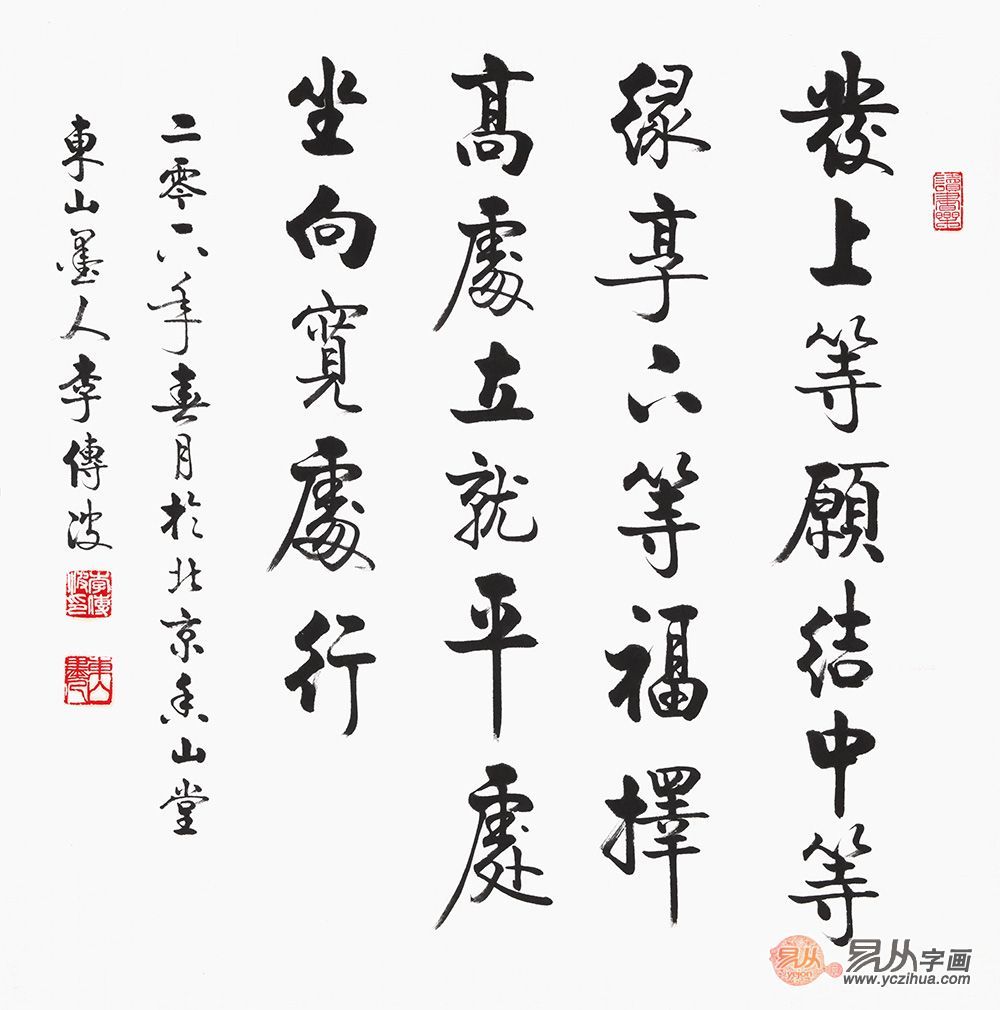 發上等願結中等
緣享下等福擇
高處立就平處
坐向寬處行
二零一六年春月於北京香山堂
東山墨人李傳波
讀書樂
李傳波印
東山墨人
易从字画
www.yczihua.com